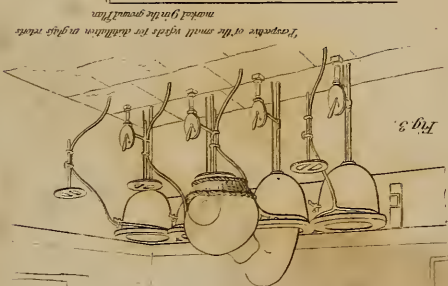 Fig. 3.
Perspective of the small veſsels for distillation in glaſs retorts
marked 9 in the ground Plan